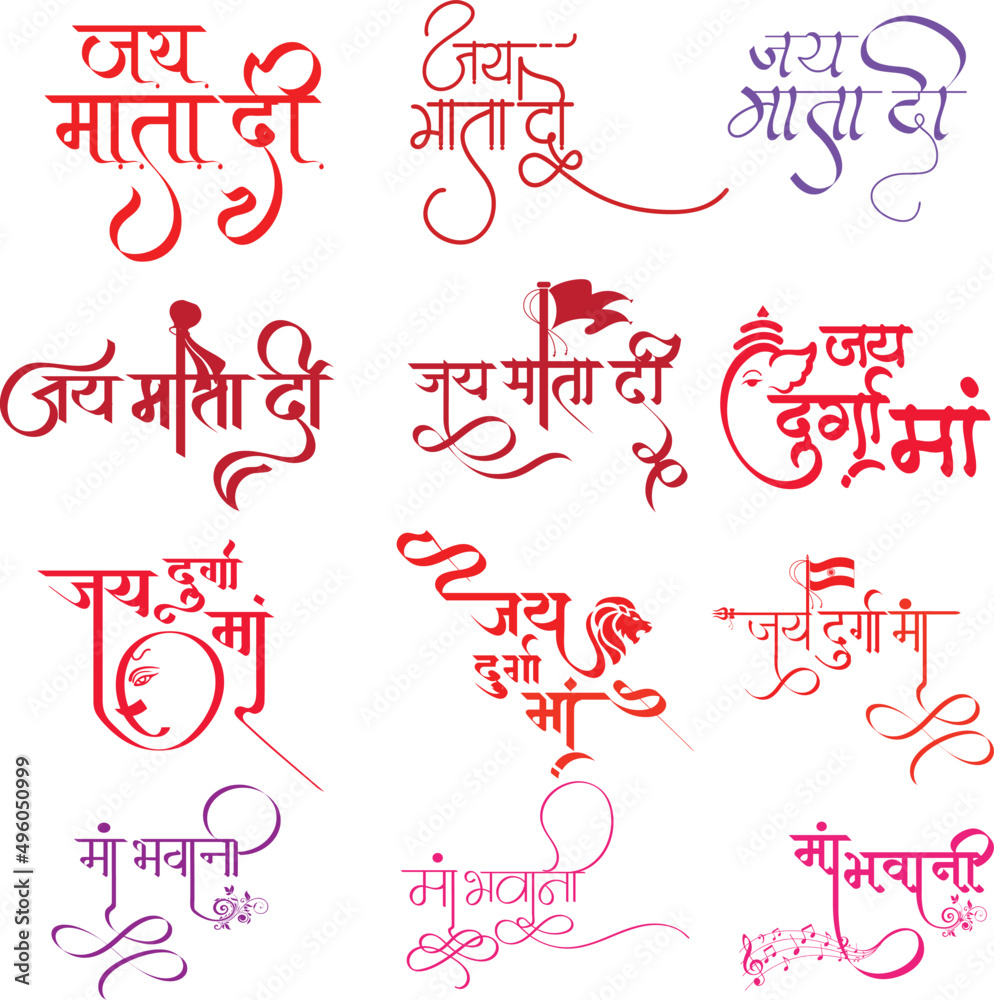 जय
माता दी
जय
माता दी
जय
माता दी
जय माता दी
जय माता दी
जय
दुर्गा मां
जय दुर्गा
मां
जय
दुर्गा
मां
जय दुर्गा मां
मां भवानी
मां भवानी
मां भवानी
Adobe Stock | #496050999